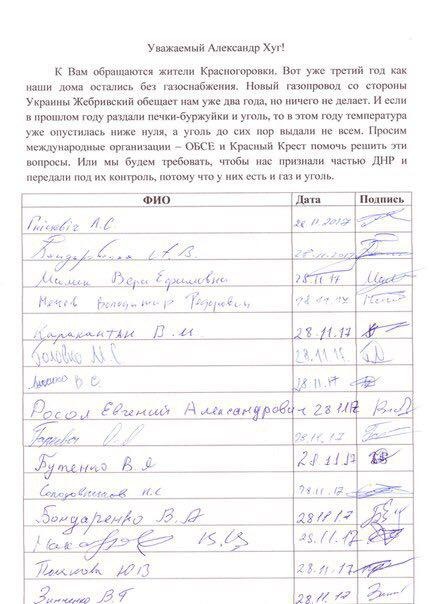 Уважаемый Александр Хуг!
К Вам обращаются жители Красногоровки. Вот уже третий год как
наши дома остались без газоснабжения. Новый газопровод со стороны
Украины Жебривский обещает нам уже два года, но ничего не делает. И если
в прошлом году раздали печки-буржуйки и уголь, то в этом году температура
уже опустилась ниже нуля, а уголь до сих пор выдали не всем. Просим
международные организации – ОБСЕ и Красный Крест помочь решить эти
вопросы. Или мы будем требовать, чтобы нас признали частью ДНР и
передали под их контроль, потому что у них есть и газ и уголь.
ФИО Дата Подпись
А.С. 28.11.2017
А.В. 28.11.2017
Вера Ефимовна 28.11.17
28.11.17
Каракантан В.И. 28.11.17
Головко М С 28.11.17
В С. 28.11.17
Росол Евгений Александрович 28.11.17
О.О 28.11.17
Бутенко В.Я 28.11.17
Солодовников 28.11.17
Бондаренко В.А 28.11.17
28.11.17
Ю.В 28.11.17
Зинченко В.Г 28.11.17